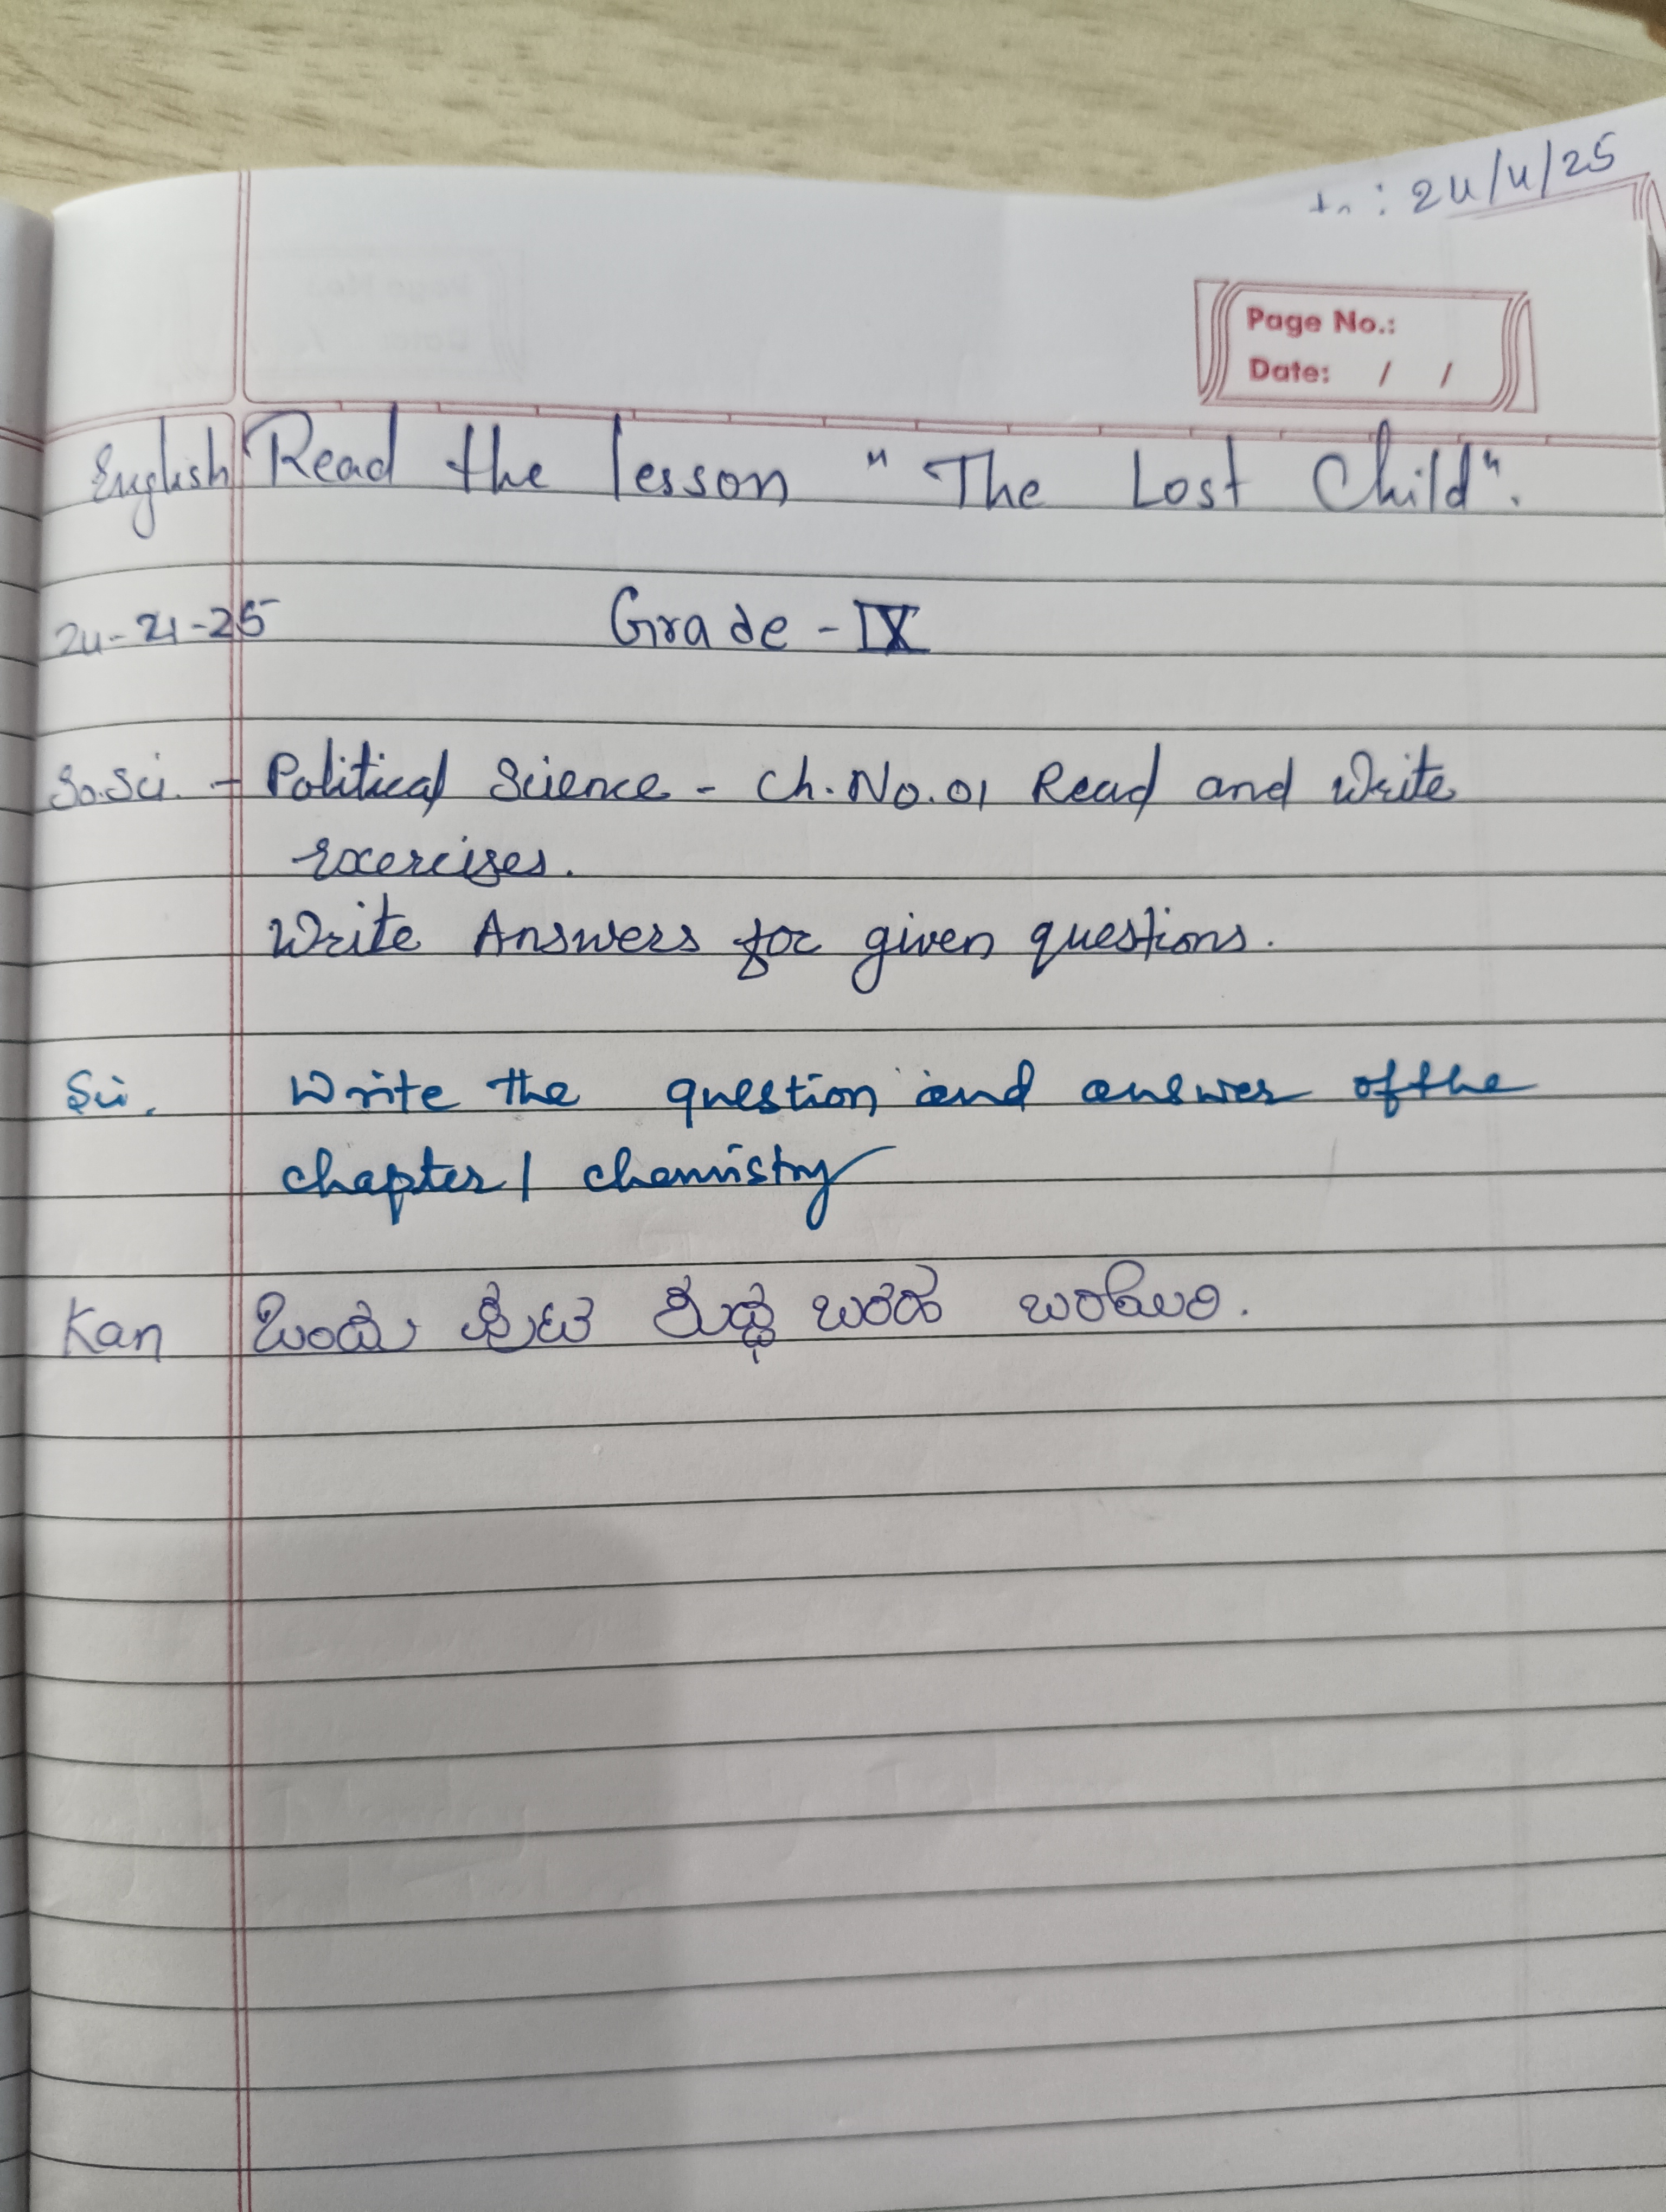 : 24/4/25
Page No.:
Date: / /
English Read the lesson "The Lost Child".
24-21-25 Grade - IX
So.Sci. - Political Science - Ch.No.01 Read and Write
exercises.
Write Answers for given questions.
Sci. Write the question and answer of the
chapter 1 chemistry
Kan ಒಂದು ಪುಟ ಶುದ್ಧ ಬರಹ ಬರೆಯಿರಿ.